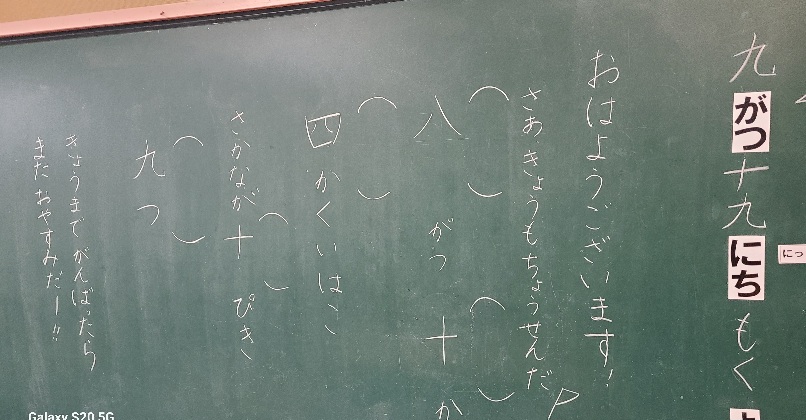 九がつ十九にちもく
にっ
おはようございます!
さあきょうもちょうせんだ
八( )がつ十( )か
四( )かくいはこ
さかなが十( )ぴき
九( )つ
きょうまでがんばったら
またおやすみだー!!
Galaxy S20 5G